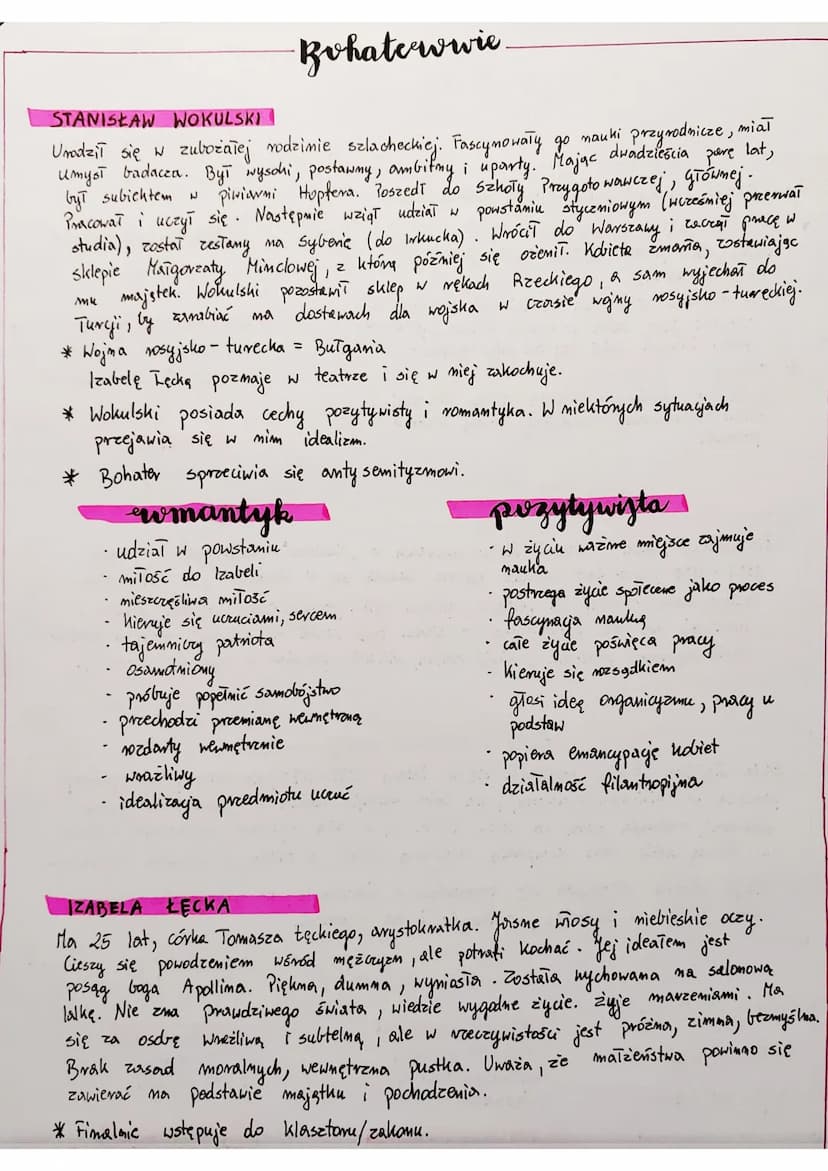 Bohaterowie
STANISŁAW WOKULSKI
Urodził się w zubożałej rodzinie szlacheckiej. Fascynowały go nauki przyrodnicze, miał
umysł badacza. Był wysoki, postawny, ambitny i uparty. Mając dwadzieścia parę lat,
był subiektem w piwiarni Hopfera. Poszedł do Szkoły Przygotowawczej, Głównej.
Pracował i uczył się. Następnie wziął udział w powstaniu styczniowym (wcześniej przerwał
studia), został zesłany na Syberię (do Irkucka). Wrócił do Warszawy i zaczął pracę w
sklepie Małgorzaty Minclowej, z którą później się ożenił. Kobieta zmarła, zostawiając
mu majątek. Wokulski pozostawił sklep w rękach Rzeckiego, a sam wyjechał do
Turcji, by zarabiać na dostawach dla wojska w czasie wojny rosyjsko-tureckiej.
* Wojna rosyjsko-turecka = Bułgaria
Izabelę Łęcką poznaje w teatrze i się w niej zakochuje.
* Wokulski posiada cechy pozytywisty i romantyka. W niektórych sytuacjach
przejawia się w nim idealizm.
* Bohater sprzeciwia się antysemityzmowi.
romantyk
· udział w powstaniu
· miłość do Izabeli
· nieszczęśliwa miłość
· kieruje się uczuciami, sercem
· tajemniczy patriota
· osamotniony
· próbuje popełnić samobójstwo
· przechodzi przemianę wewnętrzną
· rozdarty wewnętrznie
· wrażliwy
· idealizacja przedmiotu uczuć
pozytywista
· w życiu ważne miejsce zajmuje
nauka
· postrzega życie społeczne jako proces
· fascynacja nauką
· całe życie poświęca pracy
· kieruje się rozsądkiem
· głosi ideę organicyzmu, pracy u
podstaw
· popiera emancypację kobiet
· działalność filantropijna
IZABELA ŁĘCKA
Ma 25 lat, córka Tomasza Łęckiego, arystokratka. Jasne włosy i niebieskie oczy.
Cieszy się powodzeniem wśród mężczyzn, ale potrafi kochać. Jej ideałem jest
posąg boga Apollina. Piękna, dumna, wyniosła. Została wychowana na salonową
lalkę. Nie zna prawdziwego świata, wiedzie wygodne życie. Żyje marzeniami. Ma
się za osobę wrażliwą i subtelną, ale w rzeczywistości jest próżna, zimna, bezmyślna.
Brak zasad moralnych, wewnętrzna pustka. Uważa, że małżeństwa powinno się
zawierać na podstawie majątku i pochodzenia.
* Finalnie wstępuje do klasztoru/zakonu.